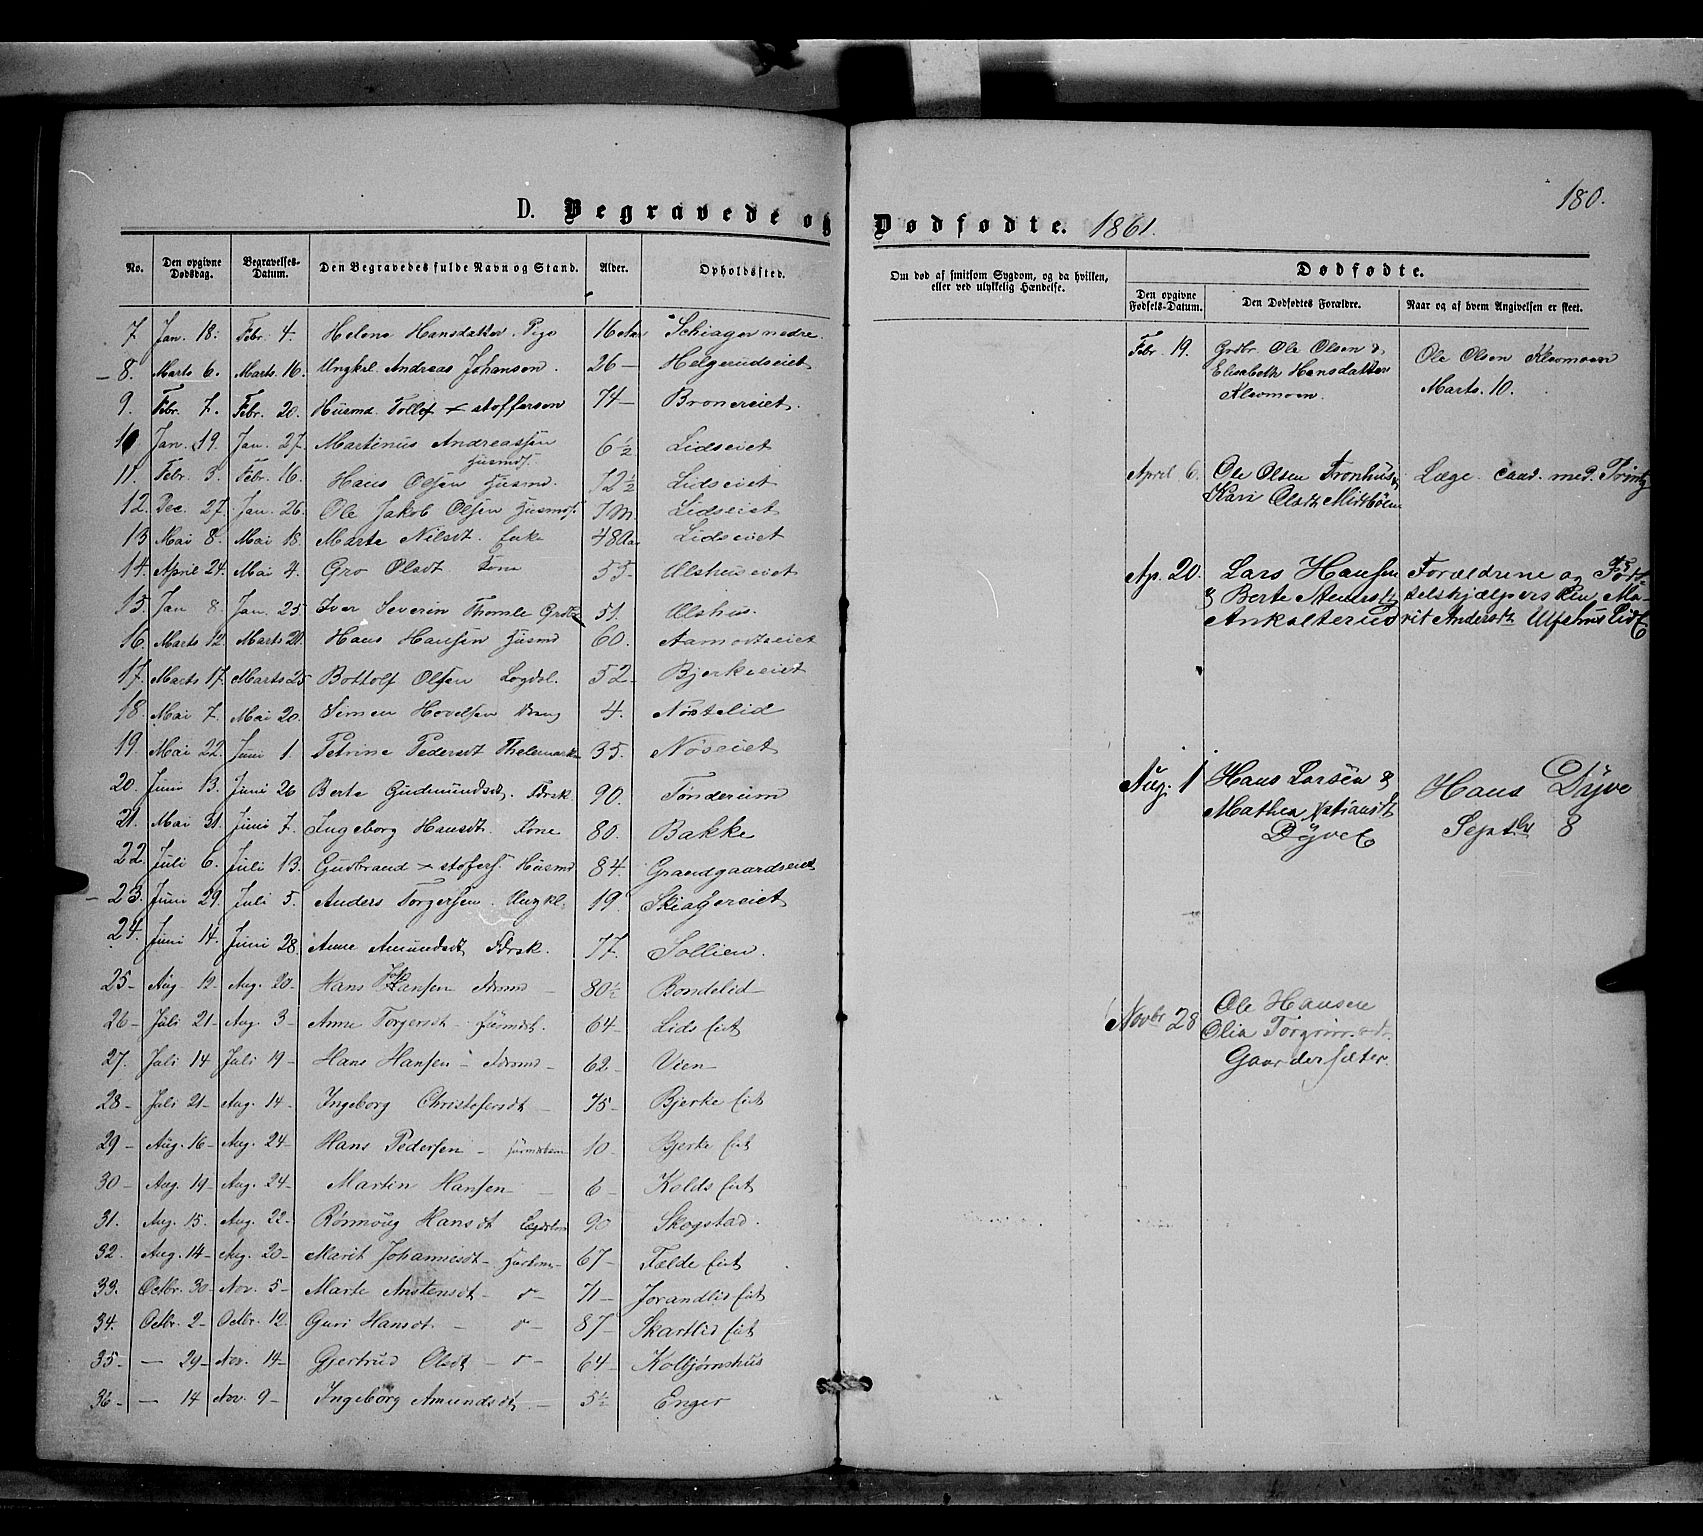 180.
D. Begravede og Dødfødte. 1861.
No. Den opgivne Dødsdag. Begravelses-Datum. Den Begravedes fulde Navn og Stand. Alder. Opholdssted.
7 Jan. 18. Febr. 4. Helene Hansdatter. Pige 16 Aar Schiager nedre.
8. Marts 6. Marts. 16. Ungkl. Andreas Johansen. 26 — Helgerudseiet
9. Febr. 7. Febr. 20. Husmd. Tollef xstoffersen 74 — Bronereiet.
10 Jan. 19. Jan. 27. Martinus Andreassen 6½ Lidseiet
Husmds.
11. Febr. 3. Febr. 16. Hans Olsen Husmd. 72½ Lidseiet
12. Dec. 27. Jan. 26. Ole Jakob Olsen Husmds. 7 M. Lidseiet
13 Mai 8. Mai 18. Marte Nilsdt. Enke 48 Aar Lidseiet
14. April 24. Mai 4. Gro Olsdt Kone 55. Ulshuseiet
15. Jan 8. Jan. 25 Iver Severin Thomle 51. Ulshus.
16. Marts 12. Marts 20. Hans Hansen Husmd 60. Aamodtseiet
17. Marts 17. Marts 25 Bottolf Olsen Legdsl. 52 Bjerkeeiet
18. Mai 7. Mai 20. Simen Hovelsen 4. Nøstelid
19. Mai 22. Juni 1. Petrine Pedersdt Thelemark 35. Nøseiet
20. Juni 13. Juni 26 Berte Gudmundsdt. Fdrsk. 90. Tønderum
21. Mai 31. Juni 7. Ingeborg Hansdt. Kone 80. Bakke
22. Juli 6. Juli 13. Gudbrand xstofers. Husmd 84. Grandgaardseiet
23. Juni 29. Juli 5. Anders Torgersen. Ungkl. 19. Skiagereiet
24. Juni 14. Juni 28. Anne Amundsdt Fdrsk. 77. Sollien.
25 - Aug. 12 Aug. 20 - Hans Hansen Fdrmd - 80½ Bondelid -
26 - Juli 21 - Aug. 3 - Anne Torgersdt - 64 - Lids Eiet
27. Juli 14 Juli 19 - Hans Hansen - Fdrmd - 62 - Vien -
28 - Juli 21 - Aug. 14 - Ingeborg Christofersdt - 75 - Bjerke Eiet
29 - Aug. 16 - Aug. 24 - Hans Pedersen - 10 - Bjerke Eiet
30 - Aug. 19 - Aug. 24 - Martin Hansen - 6 - Kolds Eiet
31. Aug. 15. Aug. 22 - Rønnoug Hansdt 90 Skogstad.
32. Aug. 14 - Aug. 20 - Marit Johannesdt - 67 - Fælde Eiet
33. Octbr. 30 - Nov. 5 - Marte Anstensdt - 71 - Jorandlid Eiet
34. Octbr. 2 - Octbr. 12 Guri Hansdt - 87 - Skartlid Eiet
35 - — 29 - Nov. 14 - Gjertrud Olsdt - 64 - Kolbjørnshus
36 - — 14 Nov. 9 - Ingeborg Amundsdt. - 5½ Enger
Om død af smitsom Sygdom, og da hvilken, eller ved ulykkelig Hændelse.
Dødfødte.
Den opgivne Fødsels-Datum. Den Dødfødtes Forældre. Naar og af hvem Angivelsen er skeet.
Febr. 19. Grdbr. Ole Olsen & Ole Olsen Klevmoen
Elisabeth Hansdatter Marts. 10.
Klevmoen.
April 6. Ole Olsen Tronhus & Læge cand. med.
Kari Olsdt
Ap. 20. Lars Hansen Forældrene og Føds
& Berte selshjælpersken Ma-
Ankelterud rit Andersdt Ulfshus Eiet
Aug. 1 Hans Larsen & Hans Dyve
Mathea Septbr 8
Dyve
Novbr 28 Ole Hansen
Olia
Gaardersæter.